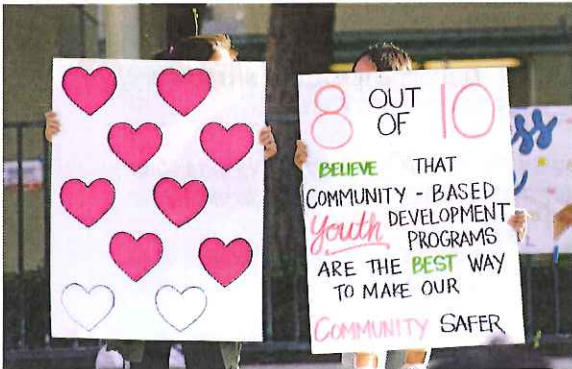 8 OUT OF 10
BELIEVE THAT
COMMUNITY - BASED
Youth DEVELOPMENT
PROGRAMS
ARE THE BEST WAY
TO MAKE OUR
COMMUNITY SAFER